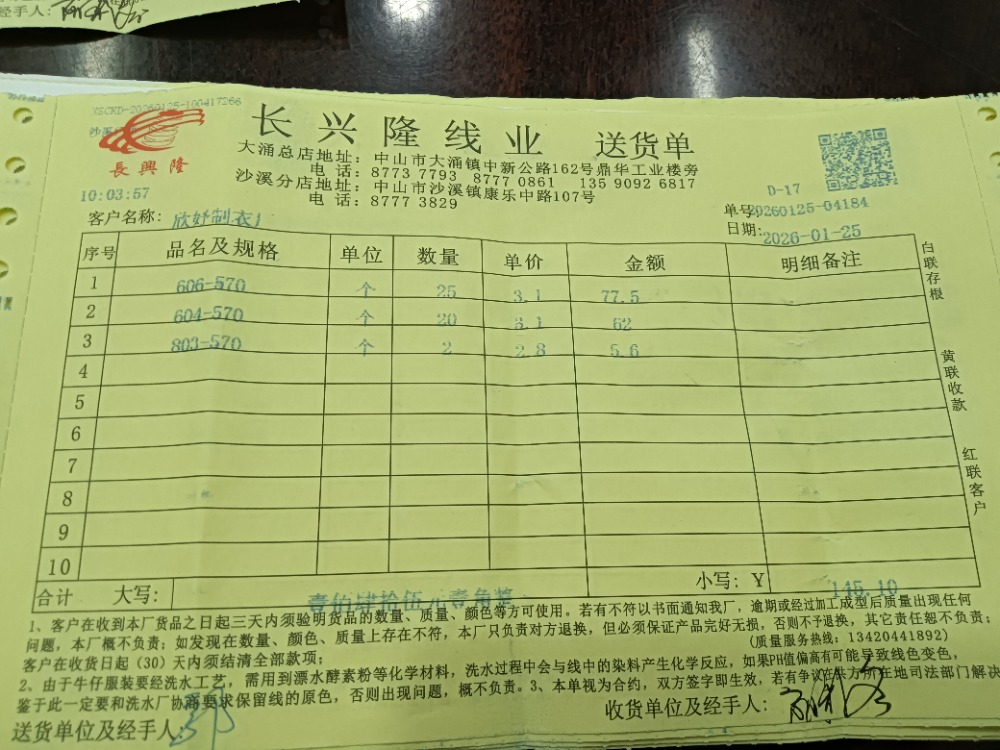 经手人：
YSCKD-20260125-100417266
長興隆
长兴隆线业 送货单
大涌总店地址：中山市大涌镇中新公路162号鼎华工业楼旁
电 话：8773 7793 8777 0861 135 9092 6817
沙溪分店地址：中山市沙溪镇康乐中路107号
电 话：8777 3829
10:03:57
D-17
客户名称：欣妤制衣厂
单号：20260125-04184
日期：2026-01-25
序号 品名及规格 单位 数量 单价 金额 明细备注
1 606-570 个 25 3.1 77.5
2 604-570 个 20 3.1 62
3 803-570 个 2 2.8 5.6
4
5
6
7
8
9
10
合计 大写：壹佰肆拾伍元壹角整 小写：￥145.10
白联存根
黄联收款
红联客户
1、客户在收到本厂货品之日起三天内须验明货品的数量、质量、颜色等方可使用。若有不符以书面通知我厂，逾期或经过加工成型后质量出现任何
问题，本厂概不负责；如发现在数量、颜色、质量上存在不符，本厂只负责对方退换，但必须保证产品完好无损，否则不予退换，其它责任恕不负责；
(质量服务热线：13420441892)
客户在收货日起（30）天内须结清全部款项；
2、由于牛仔服装要经洗水工艺，需用到漂水酵素粉等化学材料，洗水过程中会与线中的染料产生化学反应，如果PH值偏高有可能导致线色变色，
鉴于此一定要和洗水厂协商要求保留线的原色，否则出现问题，概不负责。3、本单视为合约，双方签字即生效，若有争议在供方所在地司法部门解决
送货单位及经手人：
收货单位及经手人：